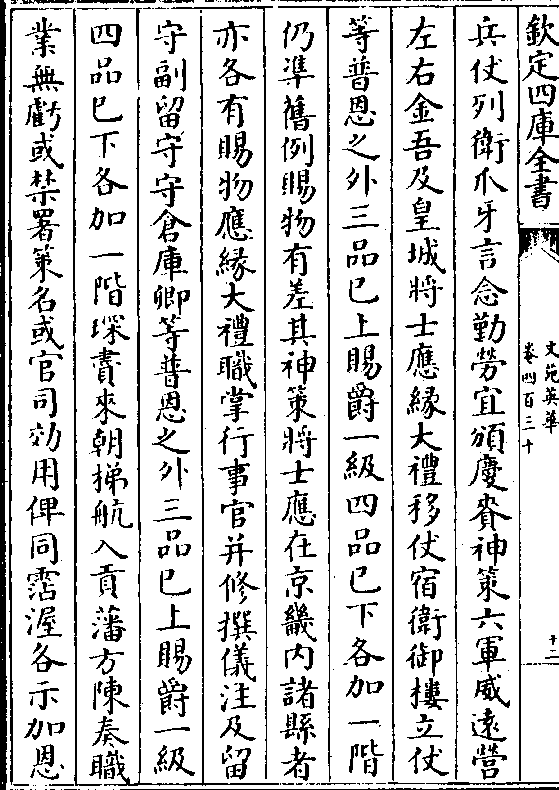 欽定四庫全書
文苑英華
卷四百三十
十二
兵仗列衛爪牙言念勤勞宜頒慶賚神策六軍威遠營
左右金吾及皇城將士應緣大禮移仗宿衛御樓立仗
等普恩之外三品已上賜爵一級四品已下各加一階
仍準舊例賜物有差其神策將士應在京畿内諸縣者
亦各有賜物應緣大禮職掌行事官并修撰儀注及留
守副留守守倉庫卿等普恩之外三品已上賜爵一級
四品已下各加一階琛賮來朝梯航入貢藩方陳奏職
業無虧或禁署策名或官司効用俾同霑渥各示加恩